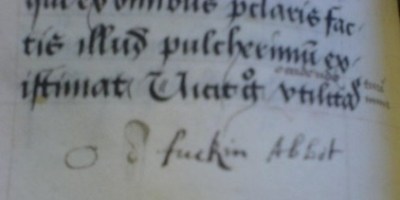 que ex omnibus p̄claris fac-
tis illud pulcherimū ex-
istimat Vicit gͦ vtilitas
O d fuckin Abbot